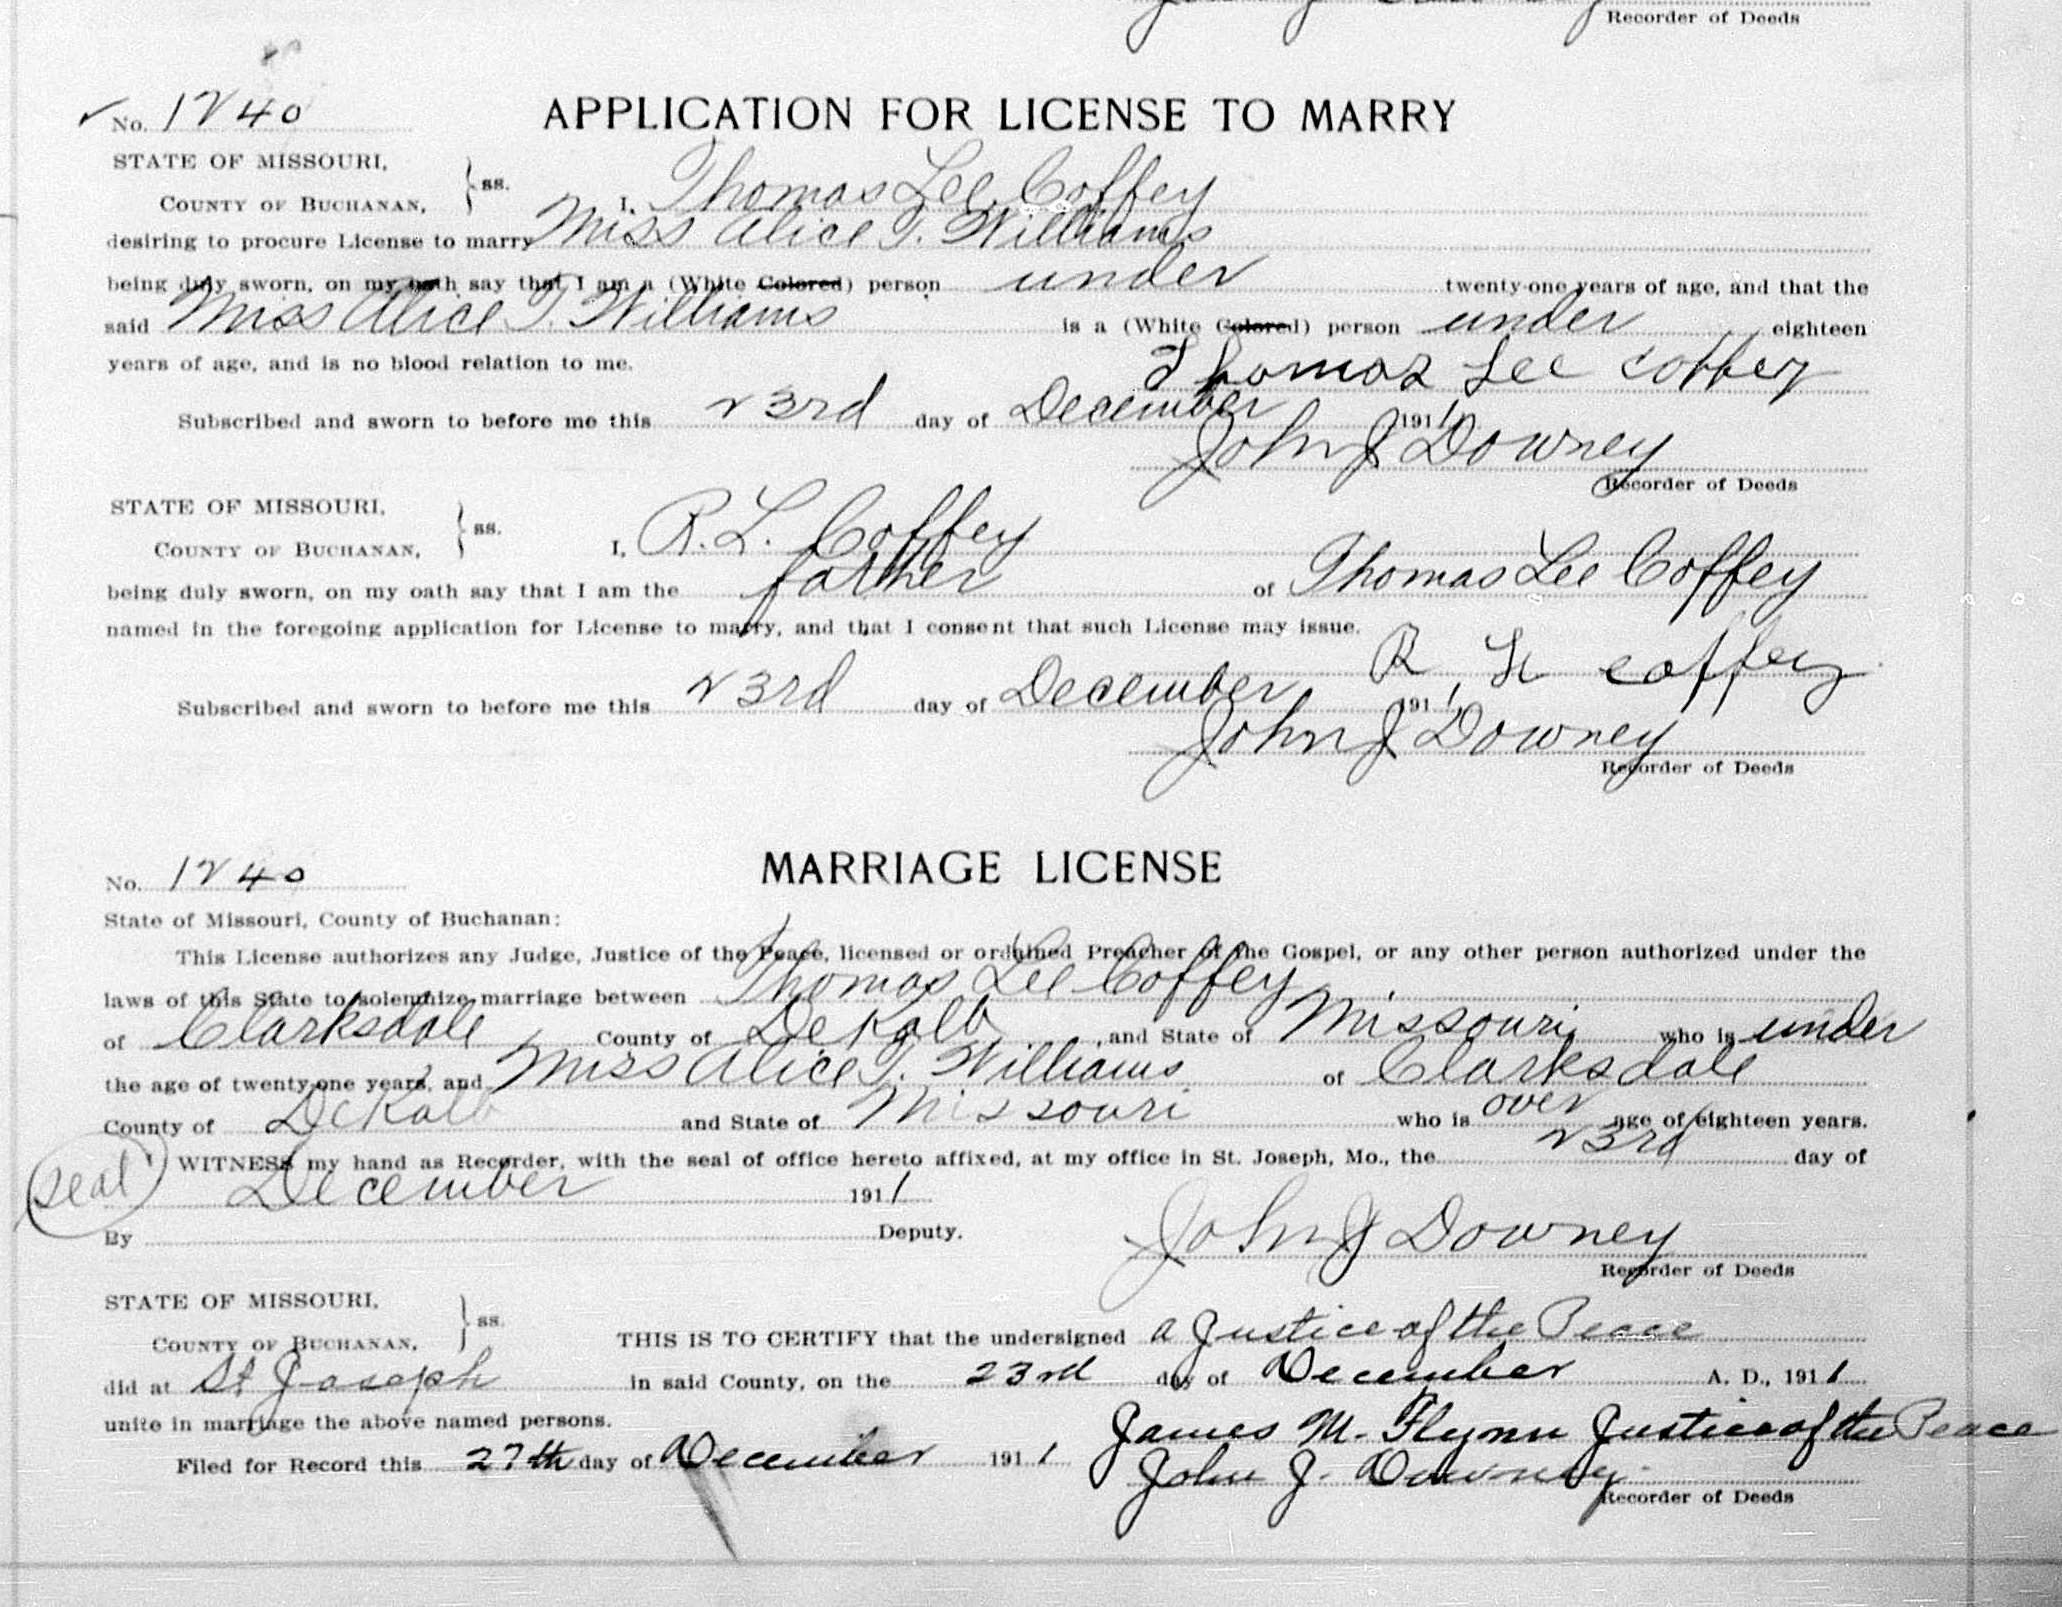 Recorder of Deeds
No. 1240
APPLICATION FOR LICENSE TO MARRY
STATE OF MISSOURI,
COUNTY OF BUCHANAN, } ss. I, Thomas Lee Coffey
desiring to procure License to marry Miss Alice T. Williams
being duly sworn, on my oath say that I am a (White Colored) person under twenty-one years of age, and that the
said Miss Alice T. Williams is a (White Colored) person under eighteen
years of age, and is no blood relation to me. Thomas Lee Coffey
Subscribed and sworn to before me this 23rd day of December 1911
John J Downey
Recorder of Deeds
STATE OF MISSOURI,
COUNTY OF BUCHANAN, } ss. I, R. L. Coffey
being duly sworn, on my oath say that I am the father of Thomas Lee Coffey
named in the foregoing application for License to marry, and that I consent that such License may issue.
R L coffey
Subscribed and sworn to before me this 23rd day of December 1911
John J Downey
Recorder of Deeds
No. 1240
MARRIAGE LICENSE
State of Missouri, County of Buchanan:
This License authorizes any Judge, Justice of the Peace, licensed or ordained Preacher of the Gospel, or any other person authorized under the
laws of this State to solemnize marriage between Thomas Lee Coffey
of Clarksdale County of DeKalb, and State of Missouri who is under
the age of twenty-one years, and Miss Alice T. Williams of Clarksdale
County of DeKalb and State of Missouri who is over age of eighteen years.
WITNESS my hand as Recorder, with the seal of office hereto affixed, at my office in St. Joseph, Mo., the 23rd day of
seal December 1911
By Deputy. John J Downey
Recorder of Deeds
STATE OF MISSOURI,
COUNTY OF BUCHANAN, } ss. THIS IS TO CERTIFY that the undersigned a Justice of the Peace
did at St Joseph in said County, on the 23rd day of December A. D., 1911
unite in marriage the above named persons. James M. Flynn Justice of the Peace
Filed for Record this 27th day of December 1911 John J. Downey
Recorder of Deeds